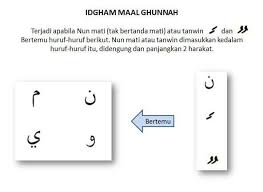 IDGHAM MAAL GHUNNAH
Terjadi apabila Nun mati (tak bertanda mati) atau tanwin ـً dan ـٌ
Bertemu huruf-huruf berikut. Nun mati atau tanwin dimasukkan kedalam
huruf-huruf itu, didengung dan panjangkan 2 harakat.
م ن
ي و
Bertemu
ن